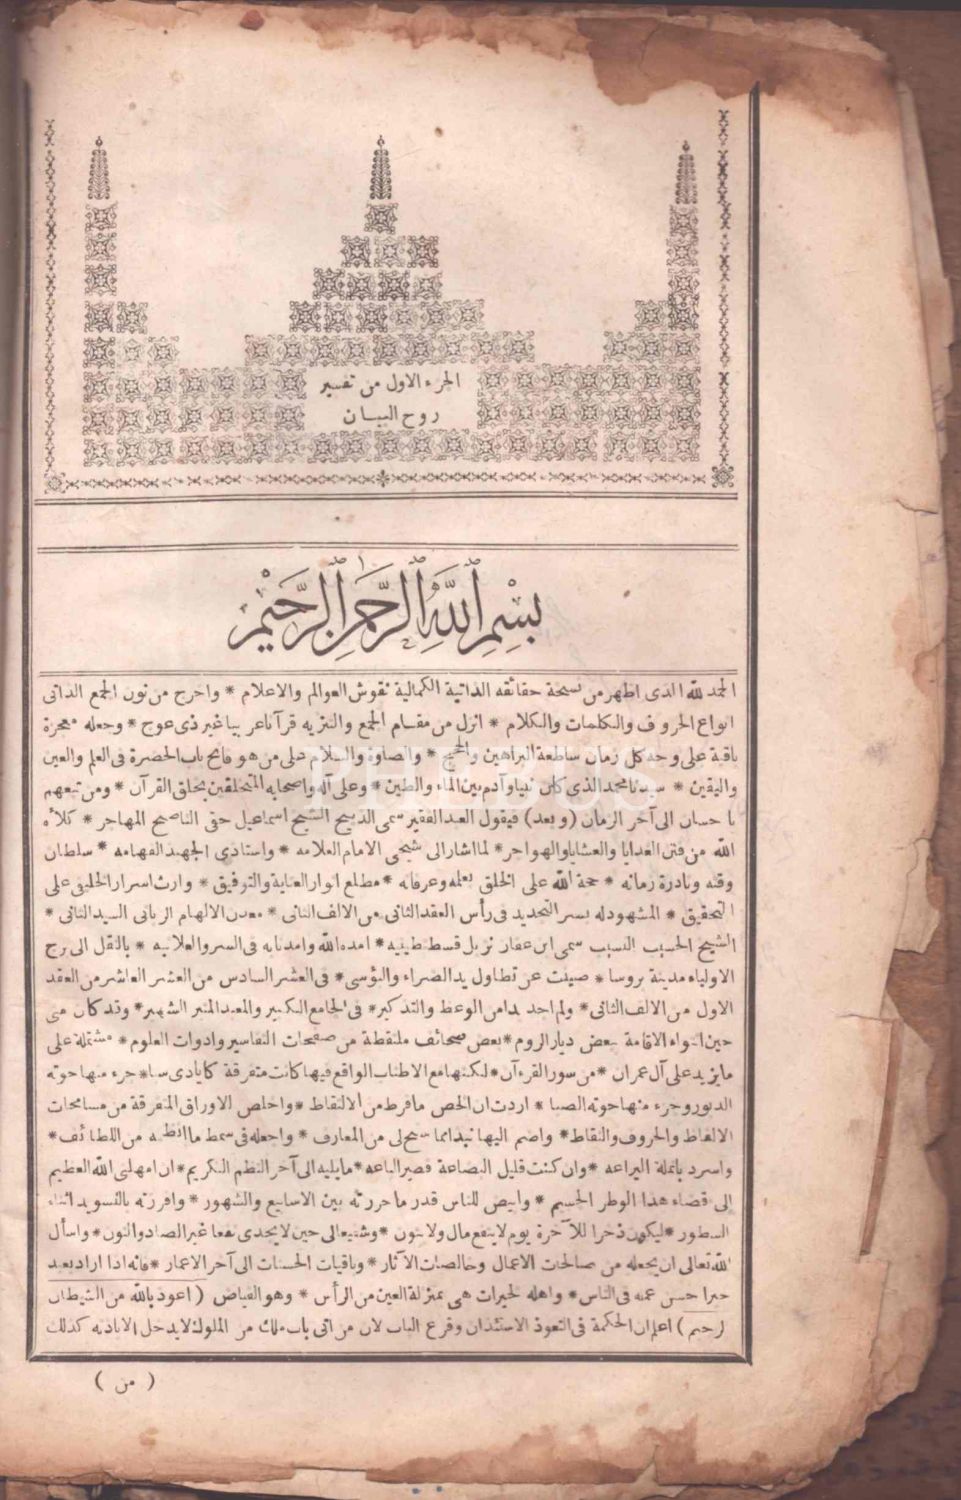 الجزء الاول من تفسير
روح البيان
بِسْمِ اللَّهِ الرَّحْمَنِ الرَّحِيمِ
الحمد لله الذى اظهر من نسخة حقائقه الذاتية الكمالية نقوش العوالم والاعلام * واخرج من نون الجمع الذاتى
انواع الحروف والكلمات والكلام * انزل من مقام الجمع والتنزيه قرآنا عربيا غير ذى عوج * وجعله معجزة
باقية على وجه كل زمان ساطعة البراهين والحجج * والصلاة والسلام على من هو فاتح باب الحضرة فى العلم والعين
واليقين * سيدنا محمد الذى كان نبيا وآدم بين الماء والطين * وعلى آله واصحابه المتخلقين بخلق القرآن * ومن تبعهم
باحسان الى آخر الزمان (وبعد) فيقول العبد الفقير سمى الذبيح الشيخ اسماعيل حقى الناصح المهاجر * كلأه
الله من فتن الغدايا والعشايا والهواجر * لما اشار الى شيخى الامام العلامه * واستاذى الجهبذ الفهامه * سلطان
وقته ونادرة زمانه * حجة الله على الخلق بعلمه وعرفانه * مطلع انوار العناية والتوفيق * وارث اسرار الخليق على
التحقيق * المشهود له بسر التجديد فى رأس العقد الثانى من الالف الثانى * معدن الالهام الربانى السيد الثانى *
الشيخ الحسيب النسيب سمى ابن عفان نزيل قسطنطينيه * امده الله وامد نابه فى السر والعلانيه * بالنقل الى برج
الاولياء مدينة بروسا * صينت عن تطاول يد الضراء والبؤسى * فى العشر السادس من العشر العاشر من العقد
الاول من الالف الثانى * ولم اجد بدا من الوعظ والتذكير * فى الجامع الكبير والمعبد المنير الشهير * وقد كان منى
حين انواء الاقامة ببعض ديار الروم * بعض صحائف ملتقطة من صفحات التفاسير وادوات العلوم * مشتملة على
ما يزيد على آل عمران * من سور القرءآن * لكنها مع الاطناب الواقع فيها كانت متفرقة كايادى سبا * جزء منها حوته
الدبور وجزء منها حوته الصبا * اردت ان الخص ما فرط من الالتقاط * واخلص الاوراق المتفرقة من مسامحات
الالفاظ والحروف والنقاط * واضم اليها نبذا مما سنح لى من المعارف * واجعله فى سمط ما انظمه من اللطائف *
واسرد بانملة اليراعه * وان كنت قليل البضاعة قصير الباعه * ما يليه الى آخر النظم الكريم * ان امهلنى الله العظيم
الى قضاء هذا الوطر الجسيم * وابيض للناس قدر ما حررته بين الاسابيع والشهور * وافرزته بالتسويد اثناء
السطور * ليكون ذخرا للآخرة يوم لا ينفع مال ولا بنون * وشفيعا لى حين لا يجدى نفعا غير الصاد والنون * واسأل
الله تعالى ان يجعله من صالحات الاعمال وخالصات الآثار * وباقيات الحسنات الى آخر الاعمار * فانه اذا اراد بعبد
خيرا حسن عمله فى الناس * واهله لخيرات هى بمنزلة العين من الرأس * وهو الفياض (اعوذ بالله من الشيطان
الرجيم) اعلم ان الحكمة فى التعوذ الاستئذان وقرع الباب لان من اتى باب ملك من الملوك لا يدخل الا باذنه كذلك
(من)